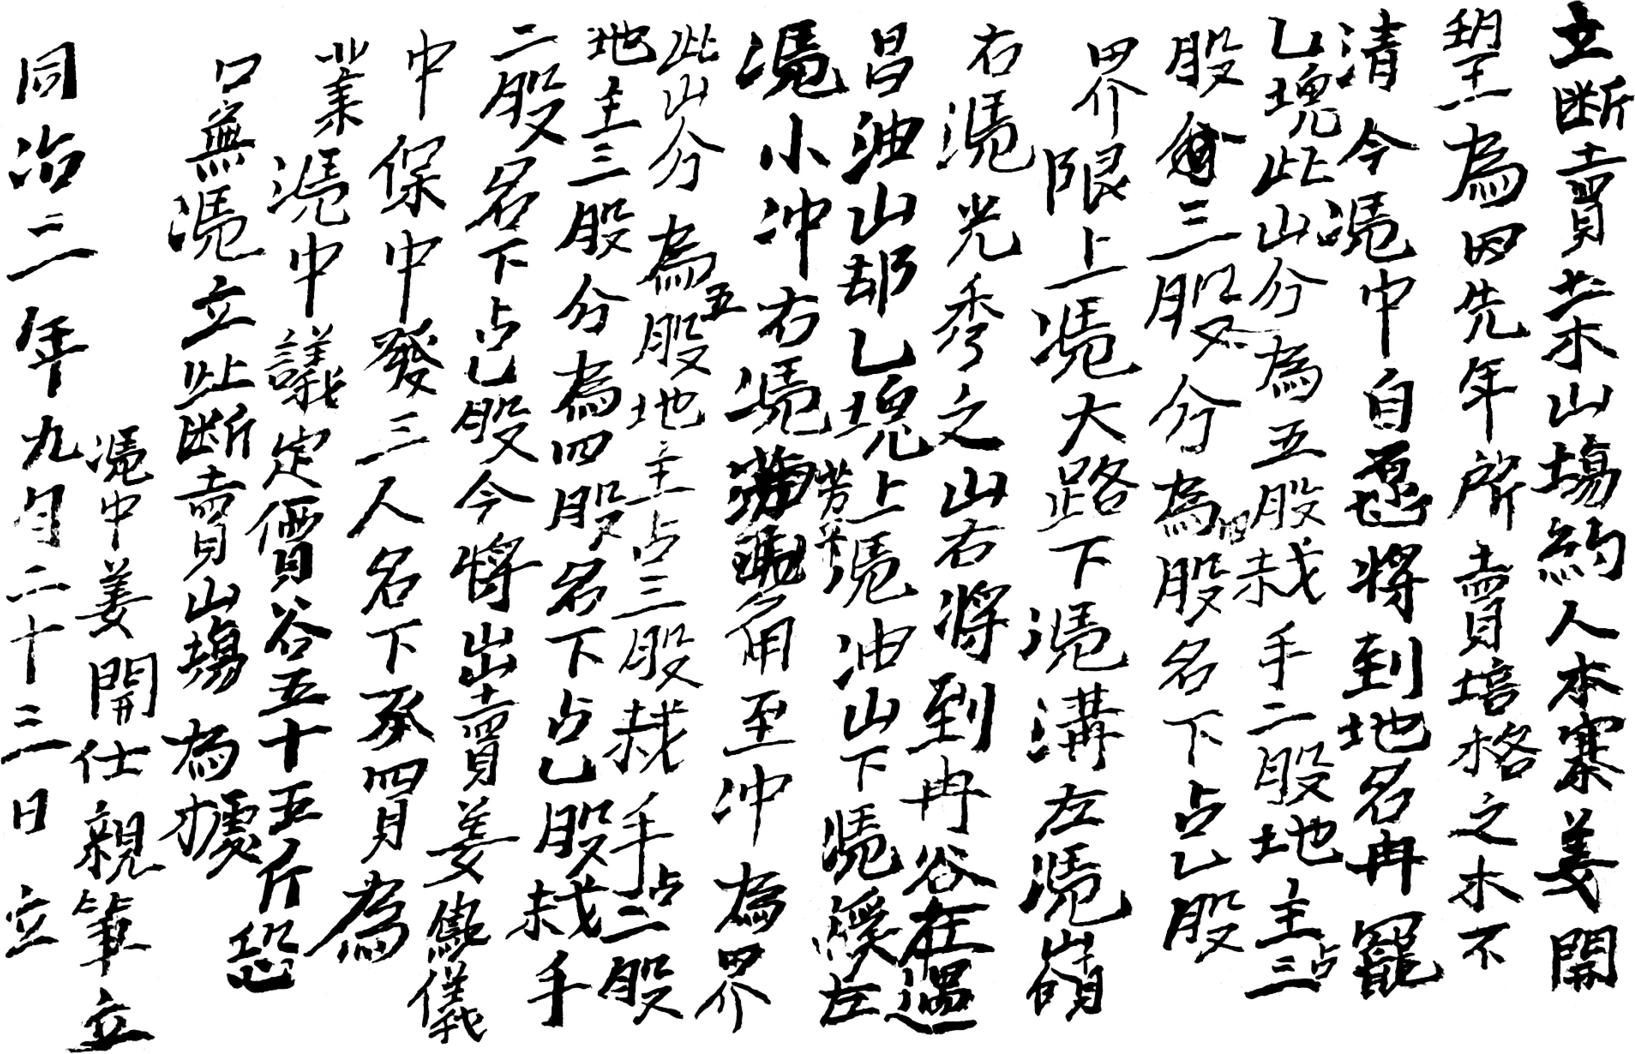 立断賣杉木山塲約人本寨姜開
為因先年所賣培格之木不
清今凴中自愿將到地名冉寵
乙塊此山分為五股栽手二股地主占三
股三股分為四股名下占乙股
界限上凴大路下凴溝左凴嶺
右凴光秀之山右將到冉谷在過
昌油山却乙塊上凴油山下凴溪左
凴小冲右凴芳角至冲為界
此山分為五股地主占三股栽手占二股
地主三股分為四股名下占乙股栽手
二股名下占乙股今將出賣姜儀
中保中發三人名下承買為
業凴中議定價谷五十五斤恐
口無凴立此断賣山塲為據
凴中姜開仕親筆立
同治二年九月二十三日立